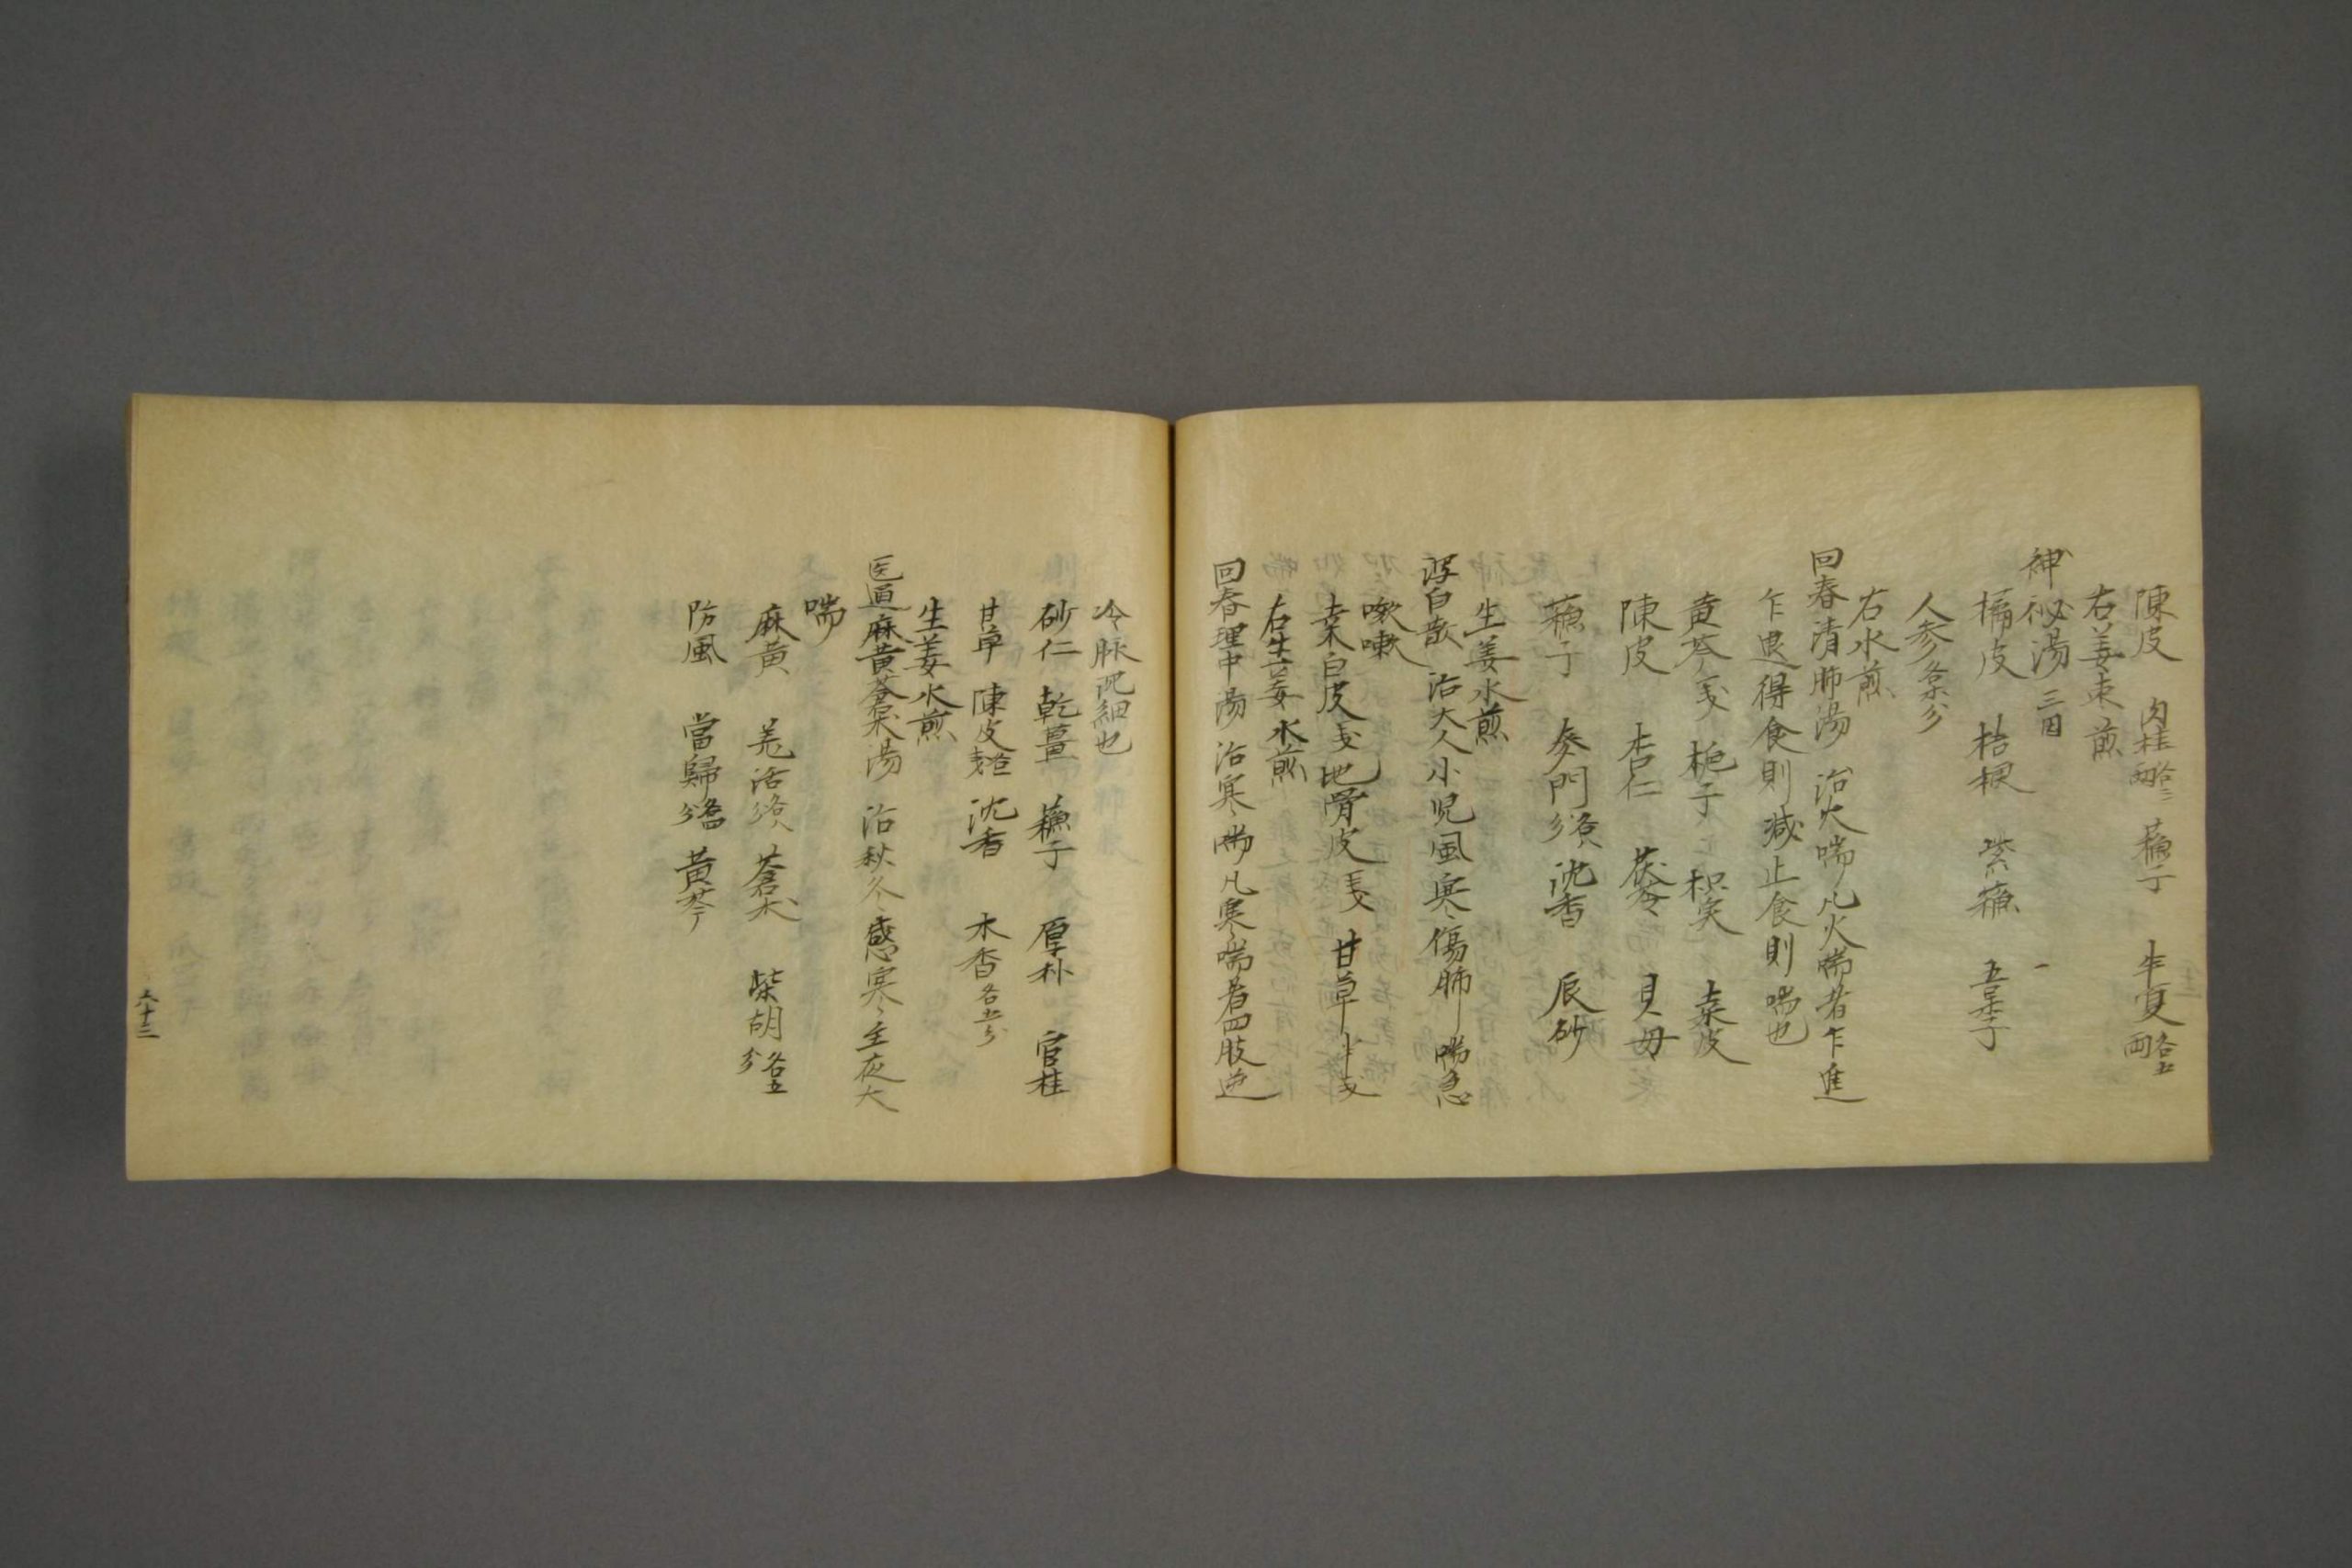 陳皮 肉桂各三両 蘓子 半夏各五両
右姜枣煎
神秘湯 三因
橘皮 桔梗 紫蘓 五味子
人参各等分
右水煎
回春清肺湯 治火喘凡火喘者乍進
乍退得食則减止食則喘也
黄芩戔 梔子 枳実 桑皮
陳皮 杏仁 茯苓 貝母
蘓子 麥門各八分 沈香 辰砂
生姜水煎
瀉白散 治大人小児風寒傷肺喘急
咳嗽
桒白皮戔 地骨皮戔 甘草半戔
右生姜水煎
回春理中湯 治寒喘凡寒喘者四肢逆
冷脉沉細也
砂仁 乾薑 蘓子 厚朴 官桂
甘草 陳皮 沈香 木香各五分
生姜水煎
医通麻黄蒼朮湯 治秋冬感寒至夜大
喘
麻黄 羌活 蒼朮 柴胡各五分
防風 當歸各四分 黄芩
六十三